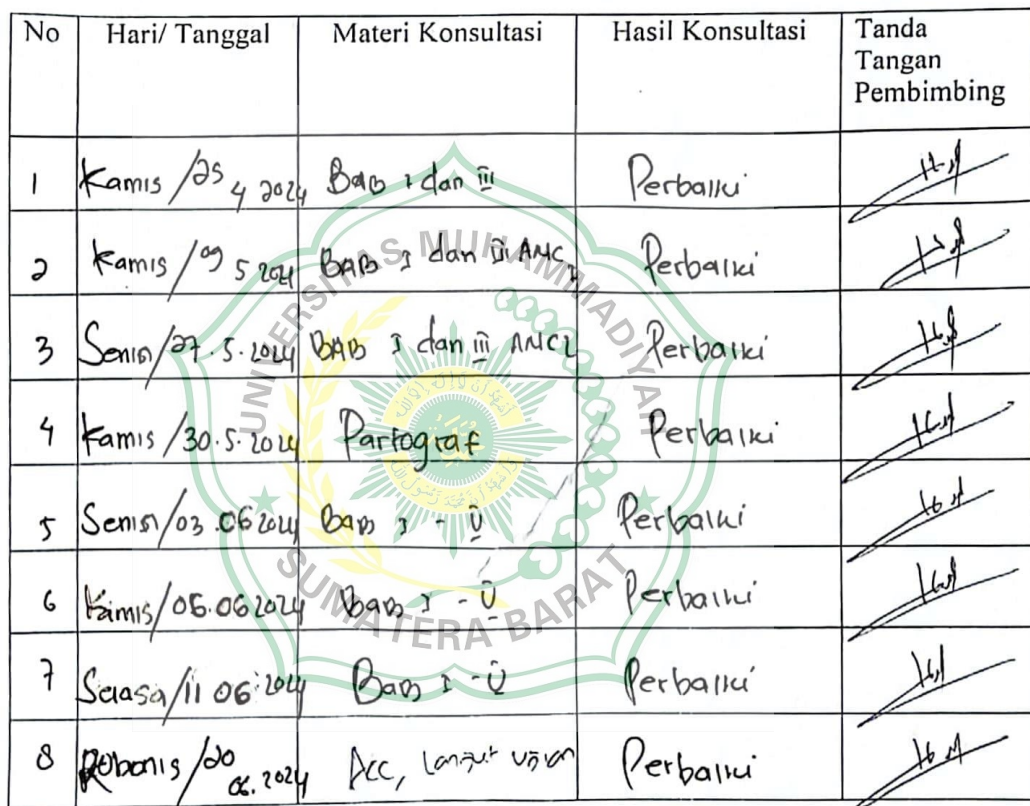 No Hari/ Tanggal Materi Konsultasi Hasil Konsultasi Tanda
Tangan
Pembimbing
1 Kamis /25 4 2024 BAB I dan III Perbaiki
2 Kamis /09 5 2024 BAB I dan III ANC 1 Perbaiki
3 Senin/27.5.2024 BAB I dan III ANC2 Perbaiki
4 Kamis /30.5.2024 Partograf Perbaiki
5 Senin/03.06 2024 Bab I - V Perbaiki
6 Kamis/06.06 2024 Bab I - V Perbaiki
7 Selasa/11 06 2024 Bab I - V Perbaiki
8 /20 06.2024 Acc, Lanjut Ujian Perbaiki
UNIVERSITAS MUHAMMADIYAH
SUMATERA BARAT